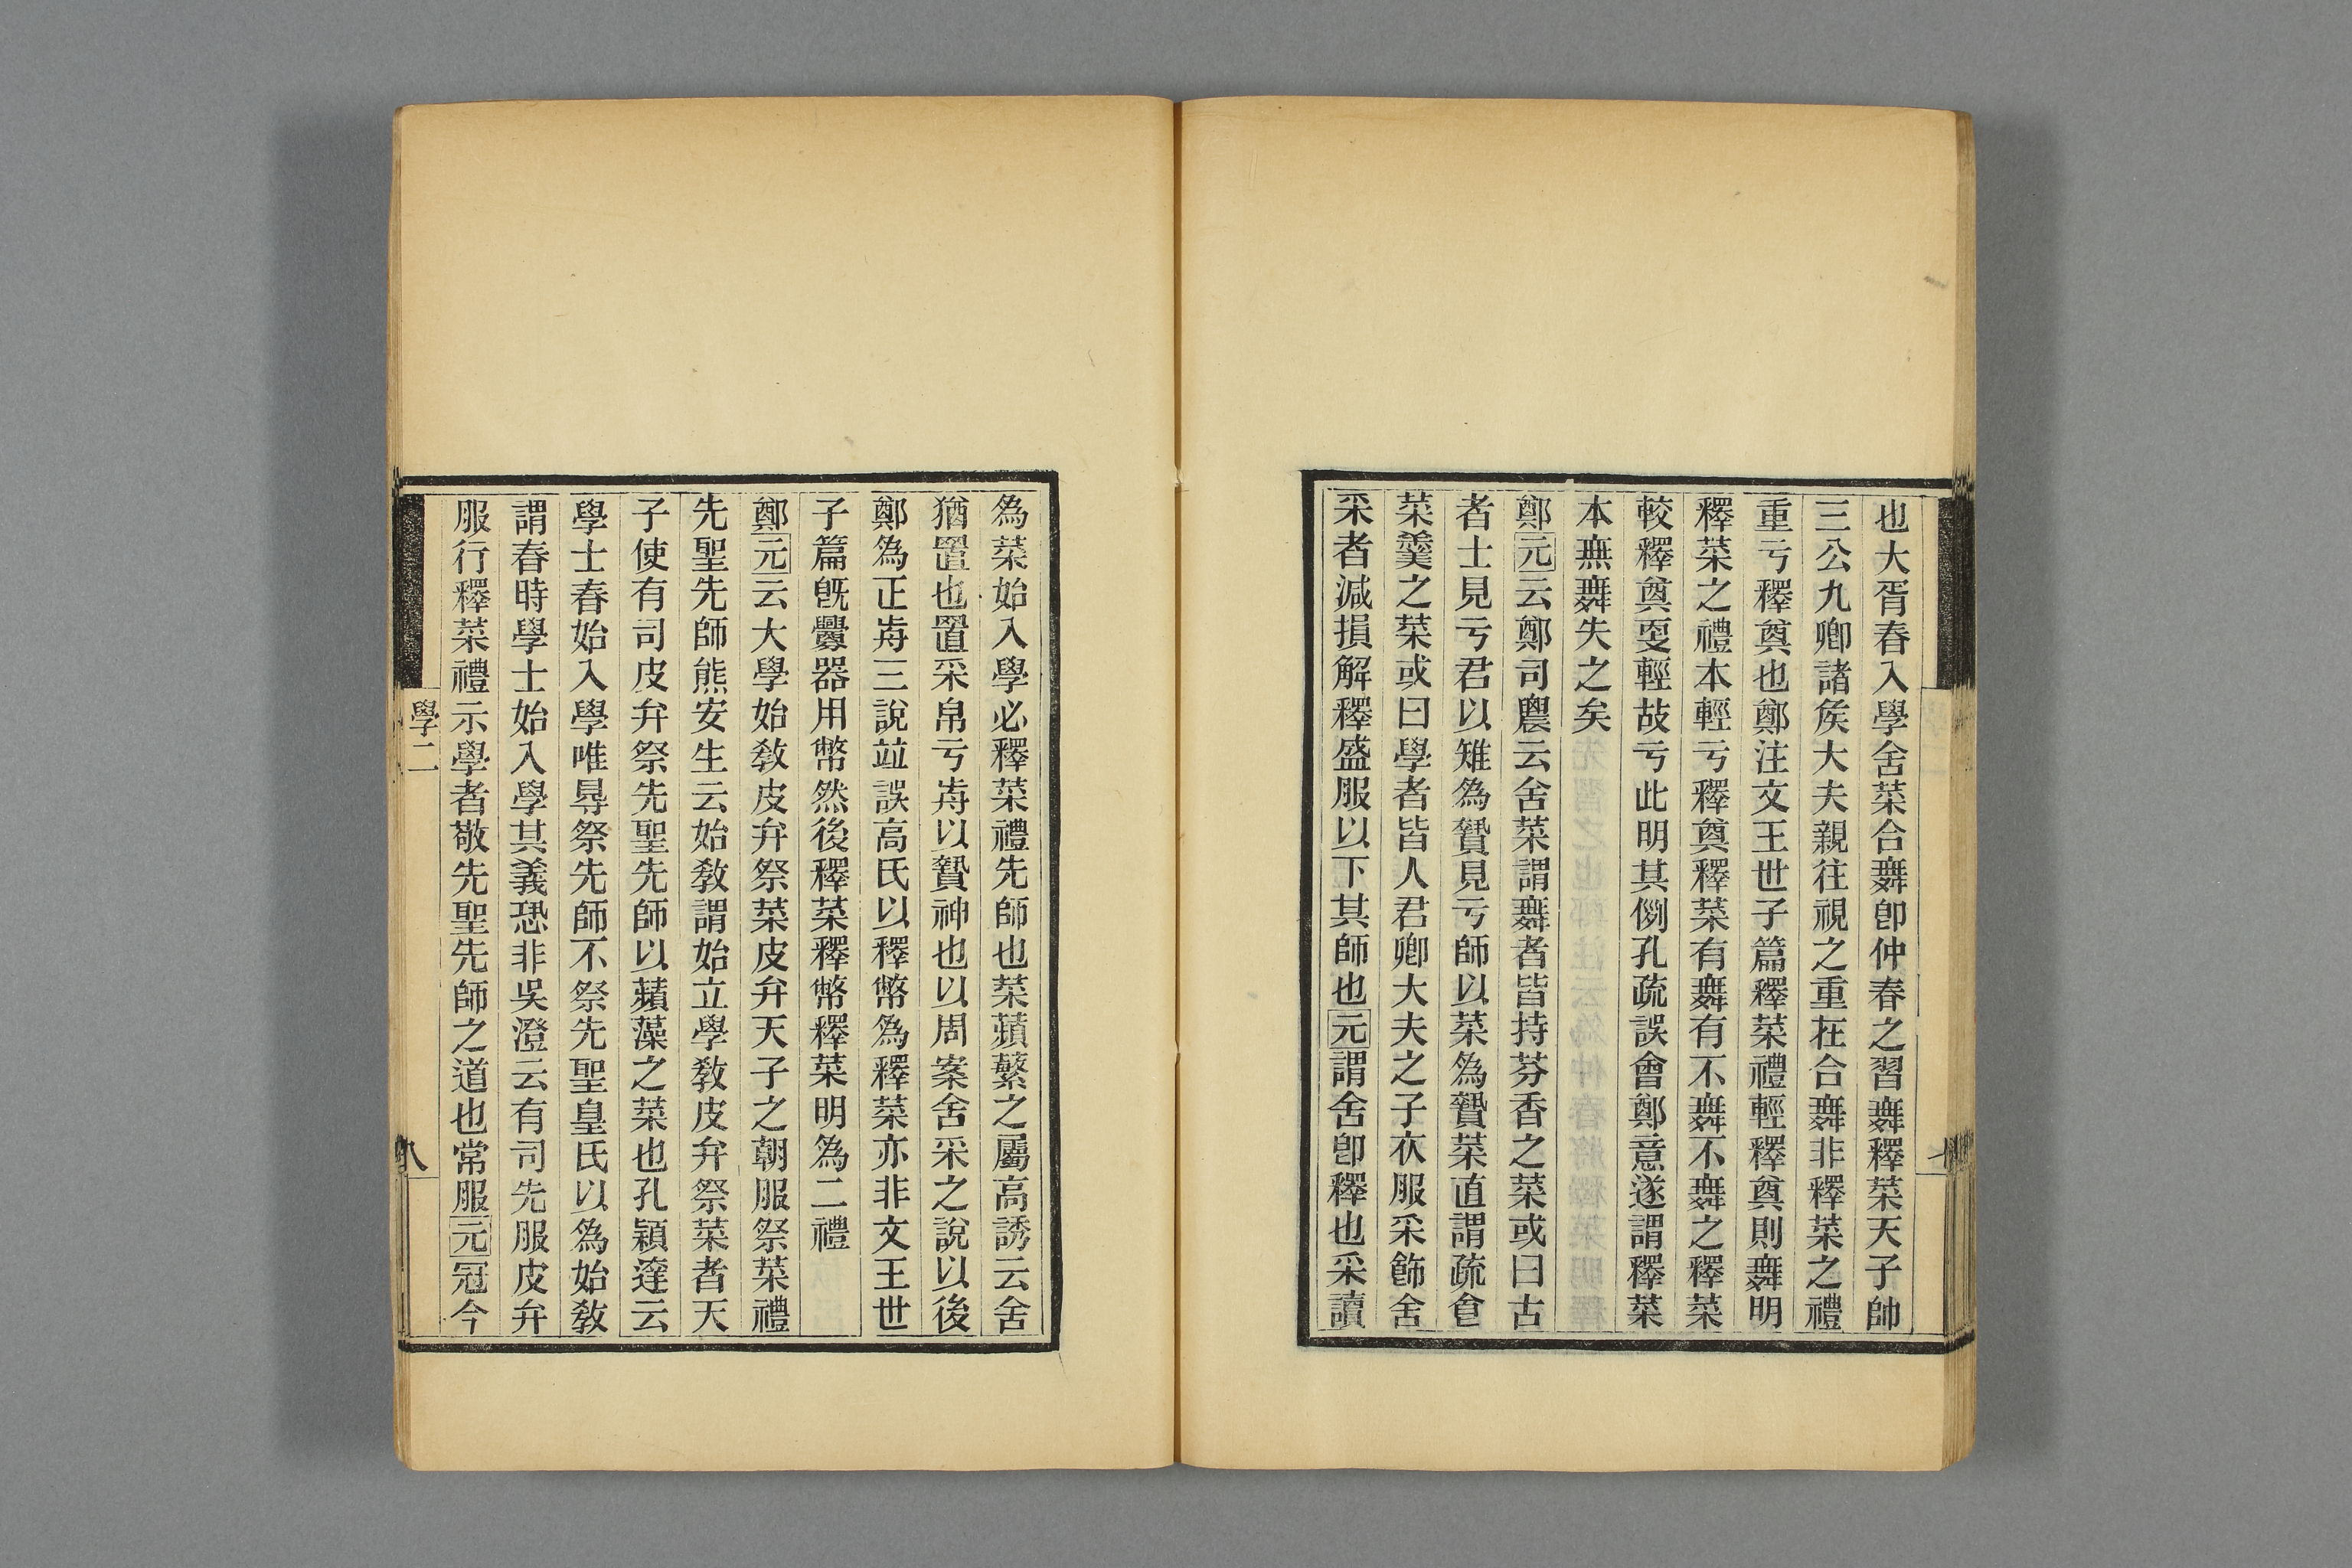 也大胥春入學舍菜合舞卽仲春之習舞釋菜天子帥
三公九卿諸矦大夫親往視之重在合舞非釋菜之禮
重亏釋奠也鄭注文王世子篇釋菜禮輕釋奠則舞明
釋菜之禮本輕亏釋奠釋菜有舞有不舞不舞之釋菜
較釋奠更輕故亏此明其例孔疏誤會鄭意遂謂釋菜
本無舞失之矣
鄭元云鄭司農云舍菜謂舞者皆持芬香之菜或曰古
者士見亏君以雉為贄見亏師以菜為贄菜直謂疏食
菜羹之菜或曰學者皆人君卿大夫之子衣服采飾舍
采者減損解釋盛服以下其師也元謂舍卽釋也采讀
七
為菜始入學必釋菜禮先師也菜蘋蘩之屬高誘云舍
猶置也置采帛亏歬以贄神也以周案舍采之說以後
鄭為正歬三說竝誤高氏以釋幣為釋菜亦非文王世
子篇旣釁器用幣然後釋菜釋幣釋菜明為二禮
鄭元云大學始敎皮弁祭菜皮弁天子之朝服祭菜禮
先聖先師熊安生云始敎謂始立學敎皮弁祭菜者天
子使有司皮弁祭先聖先師以蘋藻之菜也孔穎達云
學士春始入學唯得祭先師不祭先聖皇氏以為始敎
謂春時學士始入學其義恐非吳澄云有司先服皮弁
服行釋菜禮示學者敬先聖先師之道也常服元冠今
學二
八